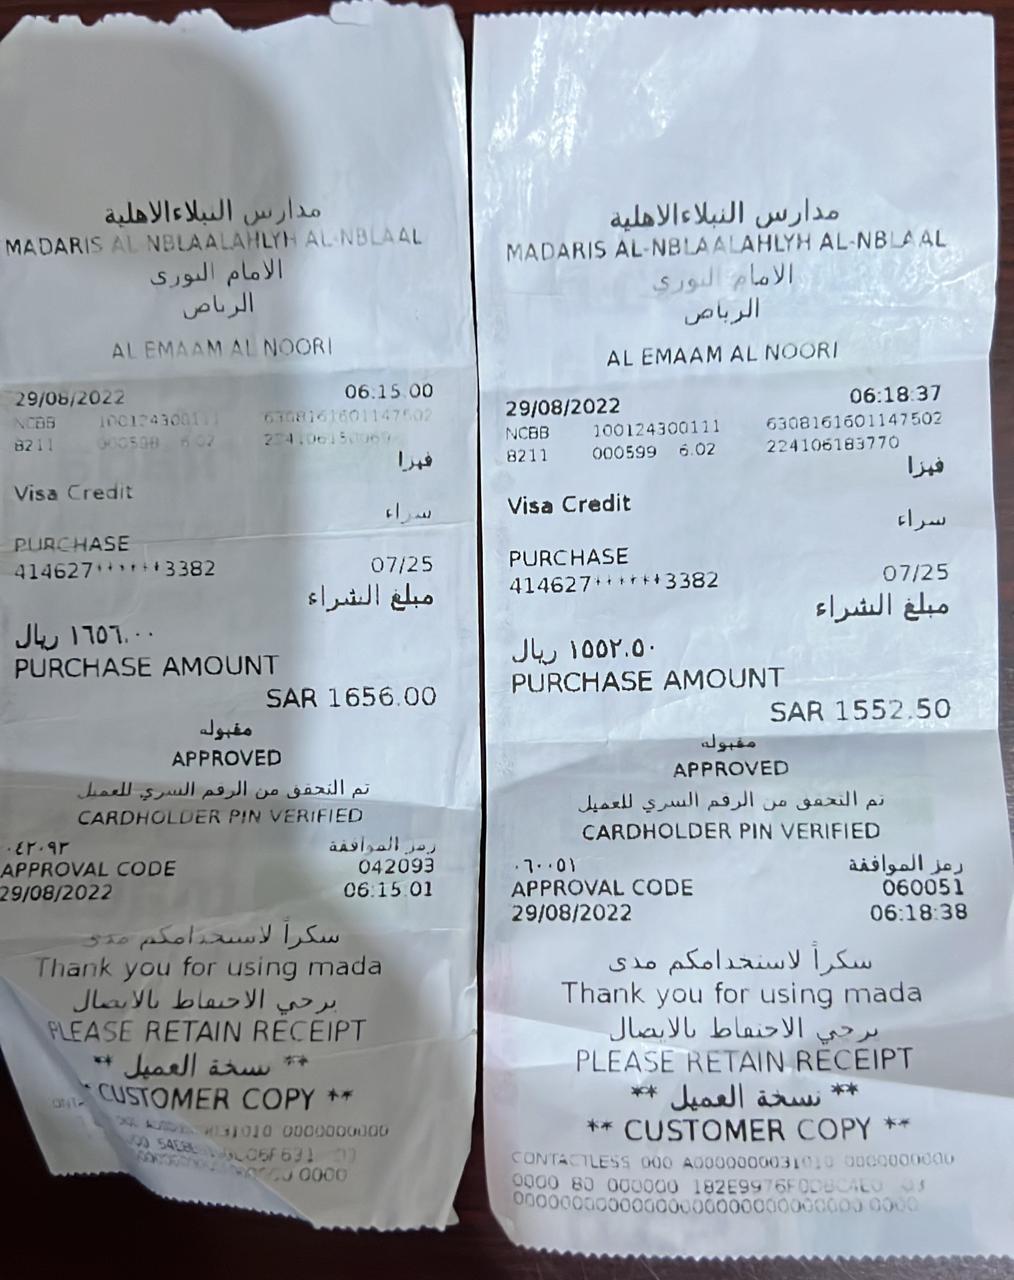 مدارس النبلاءالاهلية
MADARIS AL-NBLAALAHLYH AL-NBLAAL
الامام النوري
الرياض
AL EMAAM AL NOORI
29/08/2022 06:15:00
NCBB 100124300111 6308161601147502
8211 000598 6.02
فيزا
Visa Credit
شراء
PURCHASE
414627******3382 07/25
مبلغ الشراء
١٦٥٦.٠٠ ريال
PURCHASE AMOUNT
SAR 1656.00
مقبوله
APPROVED
تم التحقق من الرقم السري للعميل
CARDHOLDER PIN VERIFIED
٠٤٢٠٩٣ رمز الموافقة
APPROVAL CODE 042093
29/08/2022 06:15:01
شكراً لاستخدامكم مدى
Thank you for using mada
يرجي الاحتفاظ بالايصال
PLEASE RETAIN RECEIPT
** نسخة العميل **
* CUSTOMER COPY **
31010 0000000000
0000
مدارس النبلاءالاهلية
MADARIS AL-NBLAALAHLYH AL-NBLAAL
الامام النوري
الرياض
AL EMAAM AL NOORI
29/08/2022 06:18:37
NCBB 100124300111 6308161601147502
8211 000599 6.02 224106183770
فيزا
Visa Credit
شراء
PURCHASE
414627******3382 07/25
مبلغ الشراء
١٥٥٢.٥٠ ريال
PURCHASE AMOUNT
SAR 1552.50
مقبوله
APPROVED
تم التحقق من الرقم السري للعميل
CARDHOLDER PIN VERIFIED
٠٦٠٠٥١ رمز الموافقة
APPROVAL CODE 060051
29/08/2022 06:18:38
شكراً لاستخدامكم مدى
Thank you for using mada
يرجي الاحتفاظ بالايصال
PLEASE RETAIN RECEIPT
** نسخة العميل **
** CUSTOMER COPY **
CONTACTLESS 000 A0000000031010 0000000000
0000 80 000000